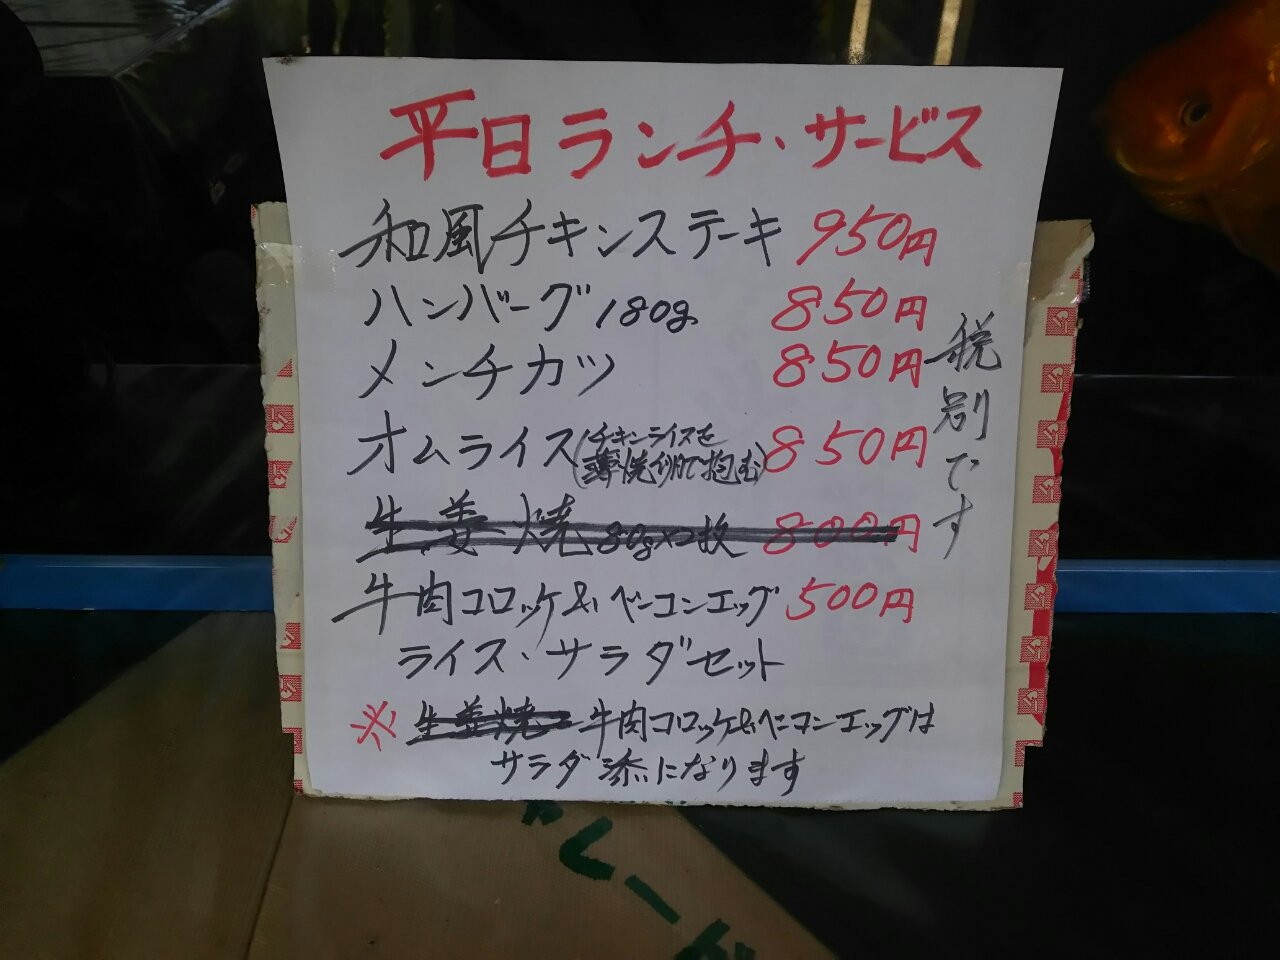 平日ランチ・サービス
和風チキンステーキ 950円
ハンバーグ 180g 850円
メンチカツ 850円
オムライス(チキンライスを薄焼卵で抱む) 850円
生姜焼 80g×2枚 800円
牛肉コロッケ&ベーコンエッグ 500円
ライス・サラダセット
※ 生姜焼 牛肉コロッケ&ベーコンエッグは
サラダ添になります
税別です